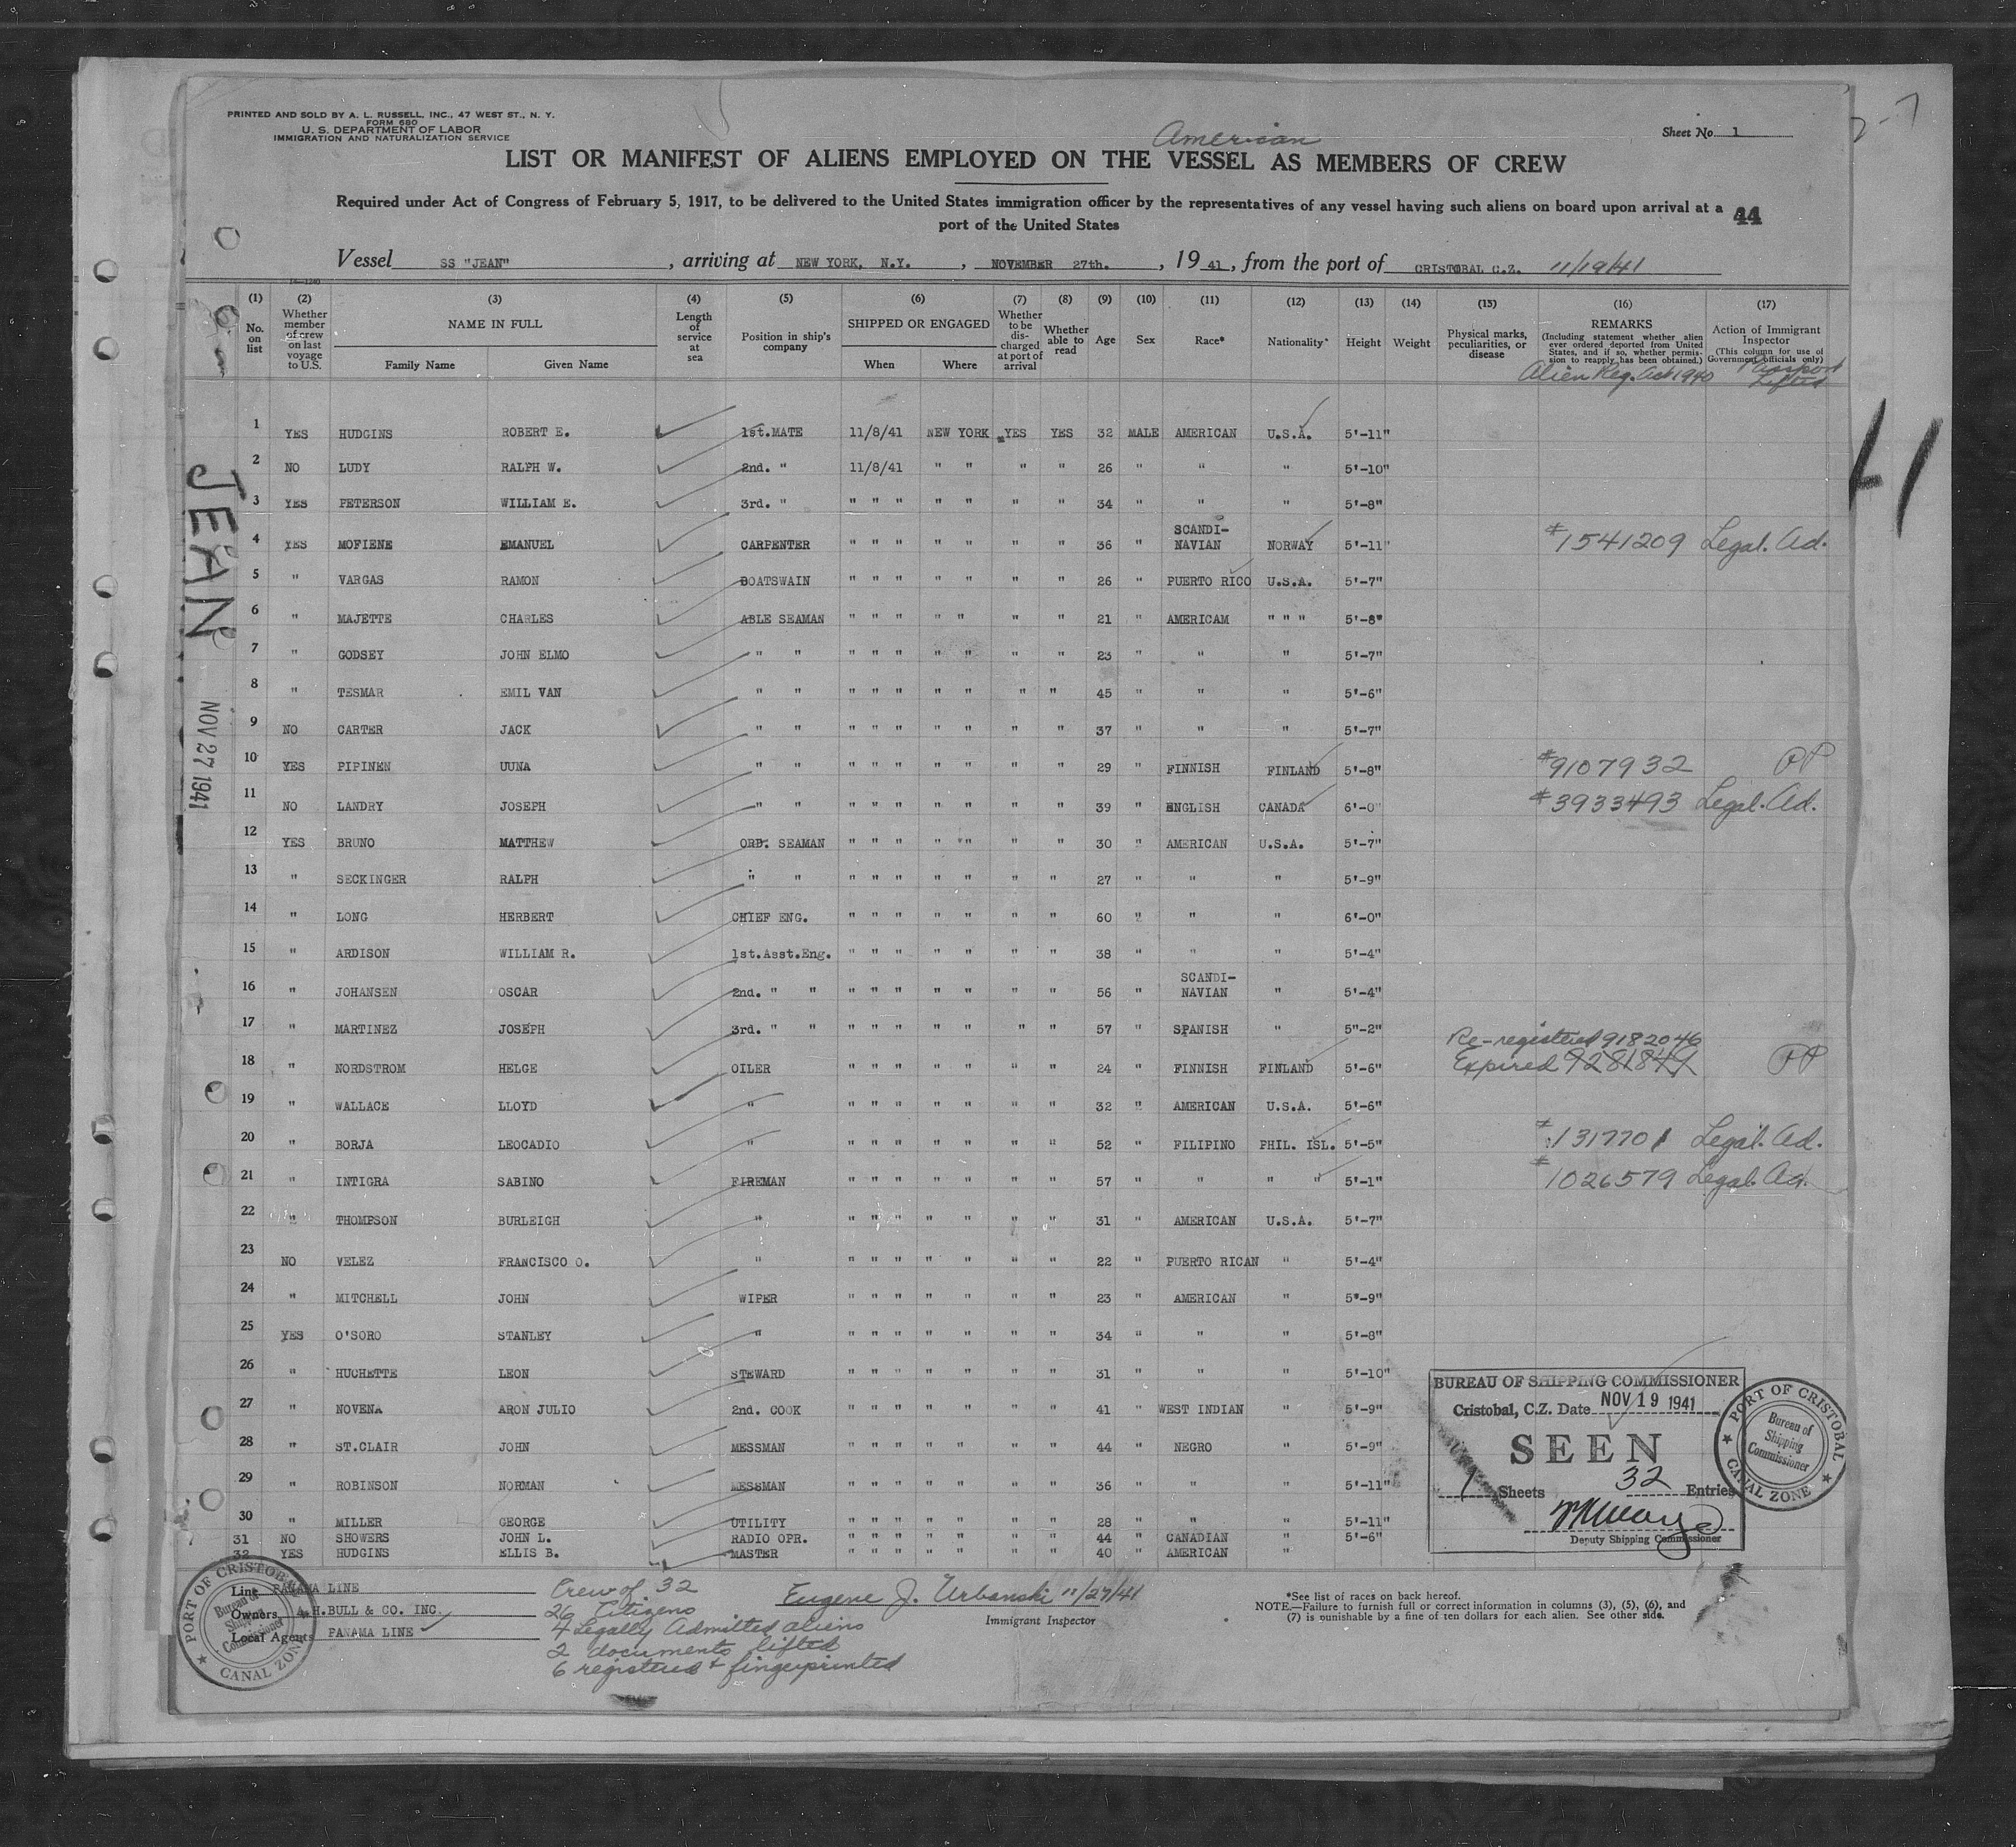 PRINTED AND SOLD BY A. L. RUSSELL, INC., 47 WEST ST., N. Y.
FORM 680
U. S. DEPARTMENT OF LABOR
IMMIGRATION AND NATURALIZATION SERVICE
Sheet No. 1
American
LIST OR MANIFEST OF ALIENS EMPLOYED ON THE VESSEL AS MEMBERS OF CREW
Required under Act of Congress of February 5, 1917, to be delivered to the United States immigration officer by the representatives of any vessel having such aliens on board upon arrival at a
port of the United States
44
Vessel SS "JEAN", arriving at NEW YORK, N.Y., NOVEMBER 27th., 19 41, from the port of CRISTOBAL C.Z. 11/19/41
(1) (2) (3) (4) (5) (6) (7) (8) (9) (10) (11) (12) (13) (14) (15) (16) (17)
No. on list | Whether member of crew on last voyage to U.S. | NAME IN FULL Family Name Given Name | Length of service at sea | Position in ship's company | SHIPPED OR ENGAGED When Where | Whether to be discharged at port of arrival | Whether able to read | Age | Sex | Race* | Nationality* | Height | Weight | Physical marks, peculiarities, or disease | REMARKS (Including statement whether alien ever ordered deported from United States, and if so, whether permission to reapply has been obtained.) | Action of Immigrant Inspector (This column for use of Government officials only)
Alien Reg. Act 1940 Passport Lifted
1 YES HUDGINS ROBERT E. 1st.MATE 11/8/41 NEW YORK YES YES 32 MALE AMERICAN U.S.A. 5'-11"
2 NO LUDY RALPH W. 2nd. " 11/8/41 " " " " 26 " " " 5'-10"
3 YES PETERSON WILLIAM E. 3rd. " " " " " " " " 34 " " " 5'-8"
4 YES MOFIENE EMANUEL CARPENTER " " " " " " " 36 " SCANDI-NAVIAN NORWAY 5'-11" #1541209 Legal. Ad.
5 " VARGAS RAMON BOATSWAIN " " " " " " " 26 " PUERTO RICO U.S.A. 5'-7"
6 " MAJETTE CHARLES ABLE SEAMAN " " " " " " " 21 " AMERICAM " " " 5'-8"
7 " GODSEY JOHN ELMO " " " " " " " " " 23 " " " 5'-7"
8 " TESMAR EMIL VAN " " " " " " " " " 45 " " " 5'-6"
9 NO CARTER JACK " " " " " " " " " 37 " " " 5'-7"
10 YES PIPINEN UUNA " " " " " " " " " 29 " FINNISH FINLAND 5'-8" #9107932 PP
11 NO LANDRY JOSEPH " " " " " " " " " 39 " ENGLISH CANADA 6'-0" #3933493 Legal. Ad.
12 YES BRUNO MATTHEW ORD. SEAMAN " " " " " " " 30 " AMERICAN U.S.A. 5'-7"
13 " SECKINGER RALPH " " " " " " " " " 27 " " " 5'-9"
14 " LONG HERBERT CHIEF ENG. " " " " " " " 60 " " " 6'-0"
15 " ARDISON WILLIAM R. 1st.Asst.Eng. " " " " " " " 38 " " " 5'-4"
16 " JOHANSEN OSCAR 2nd. " " " " " " " " " 56 " SCANDI-NAVIAN " 5'-4"
17 " MARTINEZ JOSEPH 3rd. " " " " " " " " " 57 " SPANISH " 5"-2"
Re-registered 9182046
18 " NORDSTROM HELGE OILER " " " " " " " 24 " FINNISH FINLAND 5'-6" Expired 9281849 PP
19 " WALLACE LLOYD " " " " " " " " 32 " AMERICAN U.S.A. 5'-6"
20 " BORJA LEOCADIO " " " " " " " " 52 " FILIPINO PHIL. ISL. 5'-5" #1317701 Legal. Ad.
21 " INTIGRA SABINO FIREMAN " " " " " " " 57 " " " " 5'-1" #1026579 Legal. Ad.
22 " THOMPSON BURLEIGH " " " " " " " " 31 " AMERICAN U.S.A. 5'-7"
23 NO VELEZ FRANCISCO O. " " " " " " " " 22 " PUERTO RICAN " 5'-4"
24 " MITCHELL JOHN WIPER " " " " " " " 23 " AMERICAN " 5'-9"
25 YES O'SORO STANLEY " " " " " " " " 34 " " " 5'-8"
26 " HUCHETTE LEON STEWARD " " " " " " " 31 " " " 5'-10"
27 " NOVENA ARON JULIO 2nd. COOK " " " " " " " 41 " WEST INDIAN " 5'-9"
28 " ST.CLAIR JOHN MESSMAN " " " " " " " 44 " NEGRO " 5'-9"
29 " ROBINSON NORMAN MESSMAN " " " " " " " 36 " " " 5'-11"
30 " MILLER GEORGE UTILITY " " " " " " " 28 " " " 5'-11"
31 NO SHOWERS JOHN L. RADIO OPR. " " " " " " " 44 " CANADIAN " 5'-6"
32 YES HUDGINS ELLIS B. MASTER " " " " " " " 40 " AMERICAN "
JEAN
NOV 27 1941
BUREAU OF SHIPPING COMMISSIONER
Cristobal, C.Z. Date NOV 19 1941
SEEN
1 Sheets 32 Entries
Deputy Shipping Commissioner
PORT OF CRISTOBAL
Bureau of Shipping Commissioner
CANAL ZONE
PORT OF CRISTOBAL
Bureau of Shipping Commissioner
CANAL ZONE
Line PANAMA LINE
Owners A.H.BULL & CO. INC.
Local Agents PANAMA LINE
Crew of 32
26 Citizens
4 Legally Admitted aliens
2 documents lifted
6 registered & fingerprinted
Eugene J. Urbanski 11/27/41
Immigrant Inspector
*See list of races on back hereof.
NOTE.—Failure to furnish full or correct information in columns (3), (5), (6), and
(7) is punishable by a fine of ten dollars for each alien. See other side.